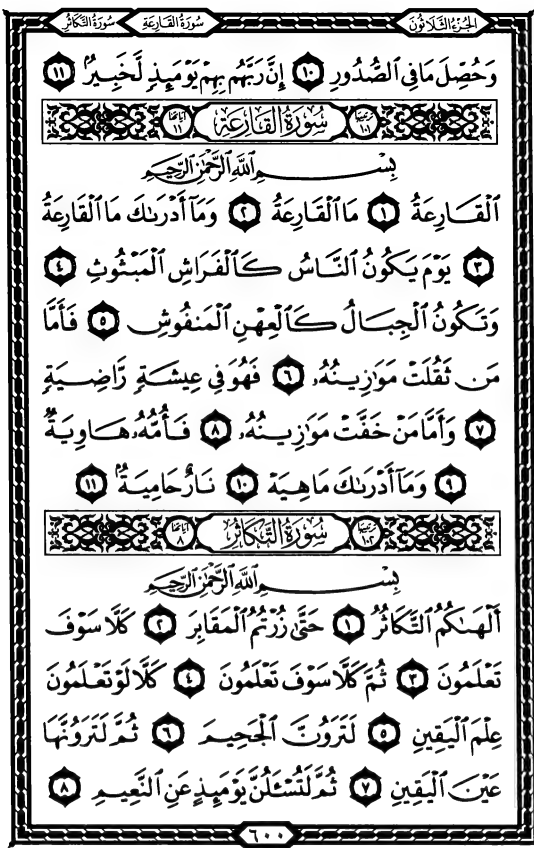 الجزء الثلاثون سورة القارعة سورة التكاثر
وَحُصِّلَ مَا فِي ٱلصُّدُورِ ١٠ إِنَّ رَبَّهُم بِهِمْ يَوْمَئِذٍ لَّخَبِيرٌۢ ١١
ترتيبها ١٠١ سُورَةُ القَارِعَةِ آياتها ١١
بِسْمِ ٱللَّهِ ٱلرَّحْمَٰنِ ٱلرَّحِيمِ
ٱلْقَارِعَةُ ١ مَا ٱلْقَارِعَةُ ٢ وَمَآ أَدْرَىٰكَ مَا ٱلْقَارِعَةُ
٣ يَوْمَ يَكُونُ ٱلنَّاسُ كَٱلْفَرَاشِ ٱلْمَبْثُوثِ ٤
وَتَكُونُ ٱلْجِبَالُ كَٱلْعِهْنِ ٱلْمَنفُوشِ ٥ فَأَمَّا
مَن ثَقُلَتْ مَوَٰزِينُهُۥ ٦ فَهُوَ فِي عِيشَةٍ رَّاضِيَةٍ
٧ وَأَمَّا مَنْ خَفَّتْ مَوَٰزِينُهُۥ ٨ فَأُمُّهُۥ هَاوِيَةٌ
٩ وَمَآ أَدْرَىٰكَ مَا هِيَهْ ١٠ نَارٌ حَامِيَةٌۢ ١١
ترتيبها ١٠٢ سُورَةُ التَّكَاثُرِ آياتها ٨
بِسْمِ ٱللَّهِ ٱلرَّحْمَٰنِ ٱلرَّحِيمِ
أَلْهَىٰكُمُ ٱلتَّكَاثُرُ ١ حَتَّىٰ زُرْتُمُ ٱلْمَقَابِرَ ٢ كَلَّا سَوْفَ
تَعْلَمُونَ ٣ ثُمَّ كَلَّا سَوْفَ تَعْلَمُونَ ٤ كَلَّا لَوْ تَعْلَمُونَ
عِلْمَ ٱلْيَقِينِ ٥ لَتَرَوُنَّ ٱلْجَحِيمَ ٦ ثُمَّ لَتَرَوُنَّهَا
عَيْنَ ٱلْيَقِينِ ٧ ثُمَّ لَتُسْـَٔلُنَّ يَوْمَئِذٍ عَنِ ٱلنَّعِيمِ ٨
٦٠٠